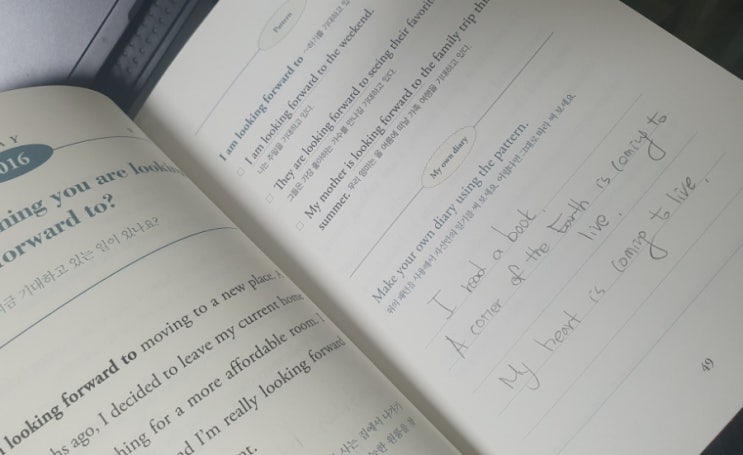 016
ning you are looking
forward to?
지금 기대하고 있는 일이 있나요?
looking forward to moving to a new place.
ago, I decided to leave my current home
for a more affordable room.
I'm really looking forward
사는 집에서 나가기
Pattern
I am looking forward to ~하기를 기대하고
I am looking forward to the weekend.
나는 주말을 기대하고 있다.
They are looking forward to seeing their favorit
그들은 가장 좋아하는 가수를 만나길 기대하고 있다.
My mother is looking forward to the family trip thi
summer. 우리 엄마는 올 여름에 떠날 가족 여행을 기대하고 있다.
My own diary
Make your own diary using the pattern.
I read a book.
A corner of the Earth is coming to
live.
My heart is coming to live.
49